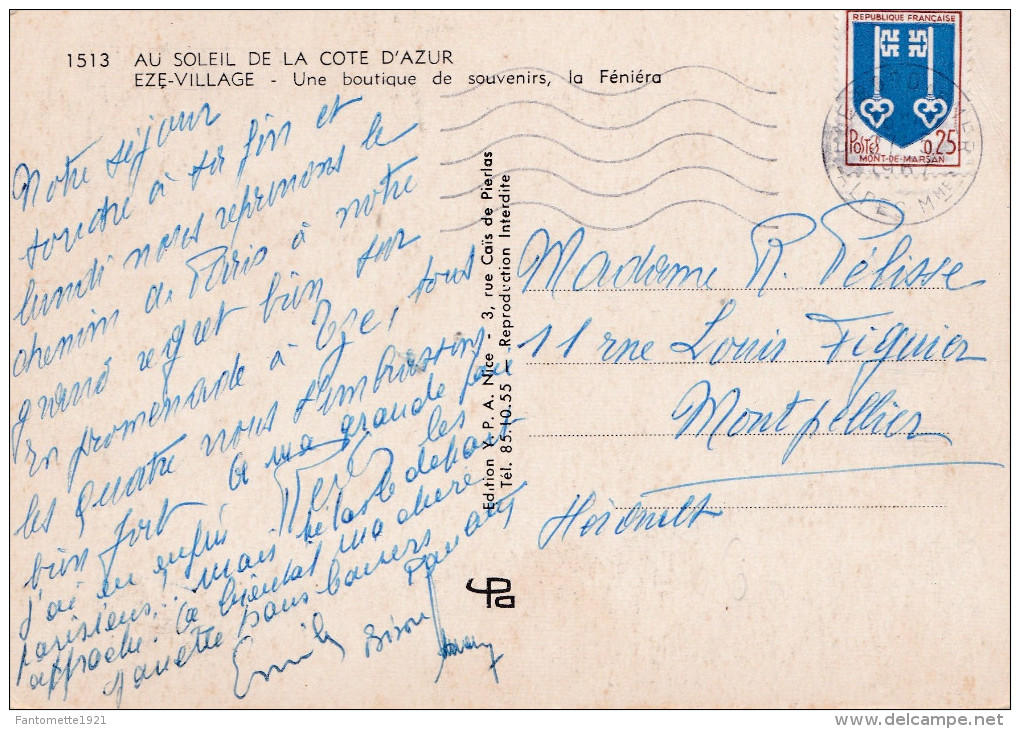 1513 AU SOLEIL DE LA COTE D'AZUR
EZE-VILLAGE - Une boutique de souvenirs, la Féniéra
Notre séjour
touche à sa fin et
lundi nous reprenons le
chemin de Paris à notre
grand regret bien sur
En promenade à Eze, tous
les quatre nous t'embrassons
bien fort
à ma grande joie
j'ai enfin les
parisiens, mais hélas le départ
approche. A bientôt ma chère
bons baisers
Emile
Edition V.P.A. Nice - 3, rue Caïs de Pierlas
Tél. 85.10.55 - Reproduction Interdite
REPUBLIQUE FRANÇAISE
POSTES 0,25
MONT-DE-MARSAN
ALPES MMES
Madame R. Pélisse
11 rue Louis Figuier
Montpellier
Hérault
Fantomette1921
http://www.delcampe.net